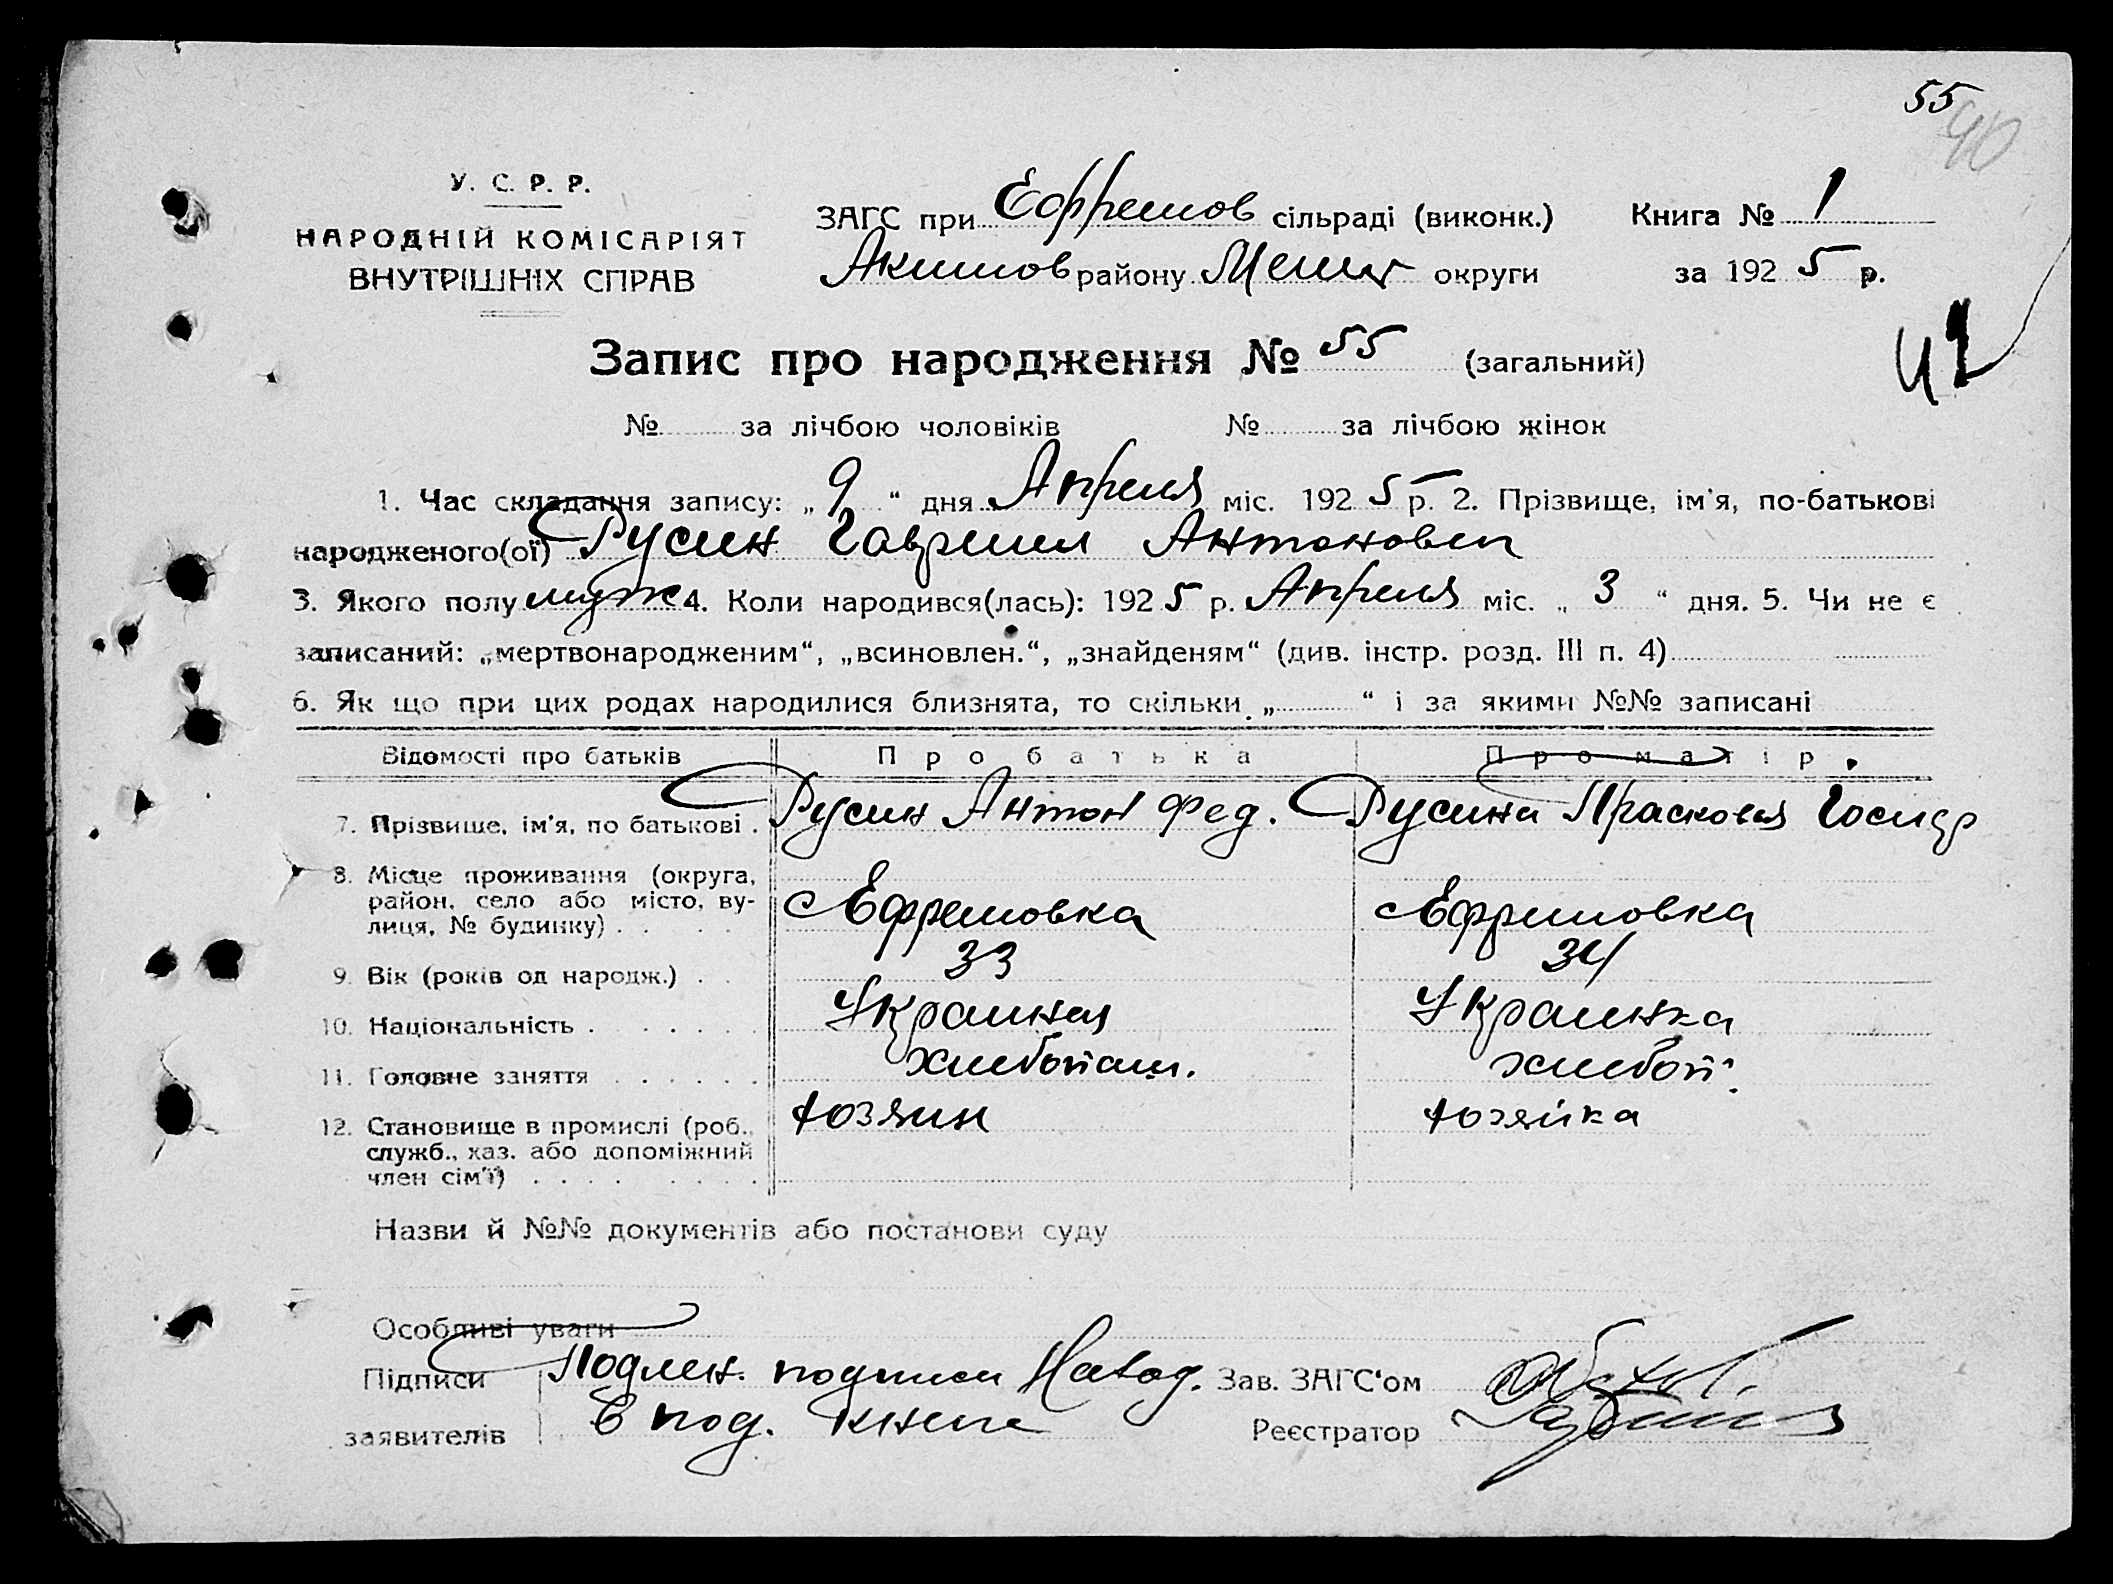 55
40
У. С. Р. Р.
НАРОДНІЙ КОМІСАРІЯТ
ВНУТРІШНІХ СПРАВ
ЗАГС при Ефремов сільраді (виконк.) Книга № 1
Акимов району Мелит округи за 1925 р.
42
Запис про народження № 55 (загальний)
№ за лічбою чоловіків № за лічбою жінок
1. Час складання запису: „9“ дня Апреля міс. 1925 р. 2. Прізвище, ім'я, по-батькові
народженого(ої) Русин Гавриил Антонович
3. Якого полу муж 4. Коли народився(лась): 1925 р. Апреля міс. „3“ дня. 5. Чи не є
записаний: „мертвонародженим“, „всиновлен.“, „знайденям“ (див. інстр. розд. III п. 4)
6. Як що при цих родах народилися близнята, то скільки „ “ і за якими №№ записані
Відомості про батьків Про батька Про матір
7. Прізвище, ім'я, по батькові . Русин Антон Фед. Русина Прасковья
8. Місце проживання (округа,
район, село або місто, ву-
лиця, № будинку) . . . . с Ефремовка с Ефримовка
9. Вік (років од народж.) . . 33 34
10. Національність . . . . . . Украинец Украинка
11. Головне заняття . . . . . . хлебопаш. хлебоп.
12. Становище в промислі (роб., хозяин хозяйка
служб., хаз. або допоміжний
член сім'ї) . . . . . . . .
Назви й №№ документів або постанови суду
Особливі уваги
Підписи Подлен. подписи Наход. Зав. ЗАГС'ом
заявителів в под. книге Реєстратор